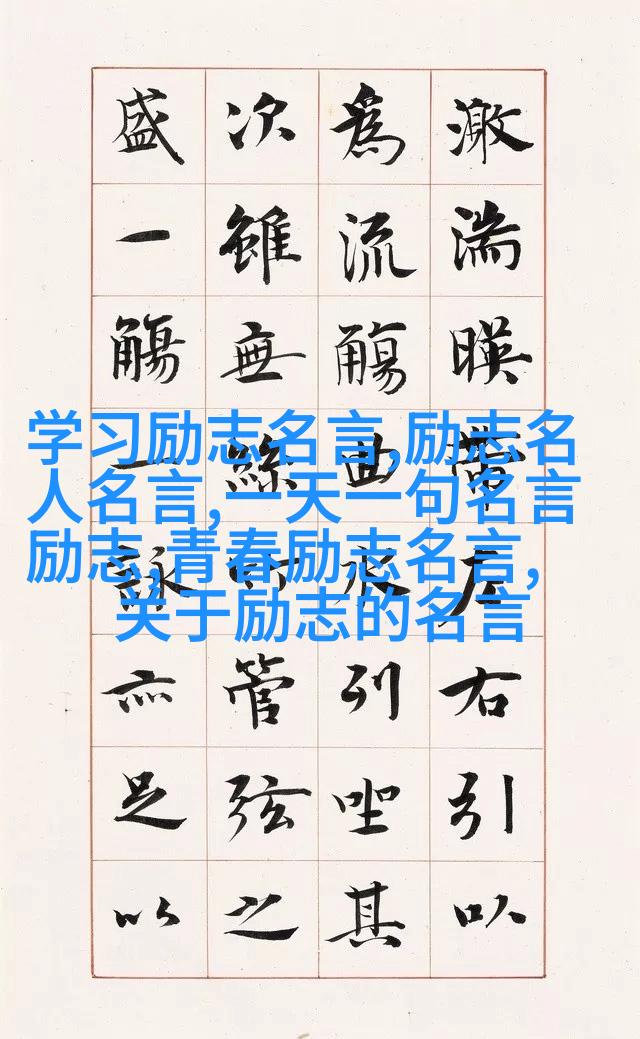 激湍暎帶左右引以
爲流觴曲水列坐其
次雖無絲竹管弦之
盛一觴一詠亦足以
学习励志名言,励志名
人名言,一天一句名言
励志,青春励志名言,
关于励志的名言